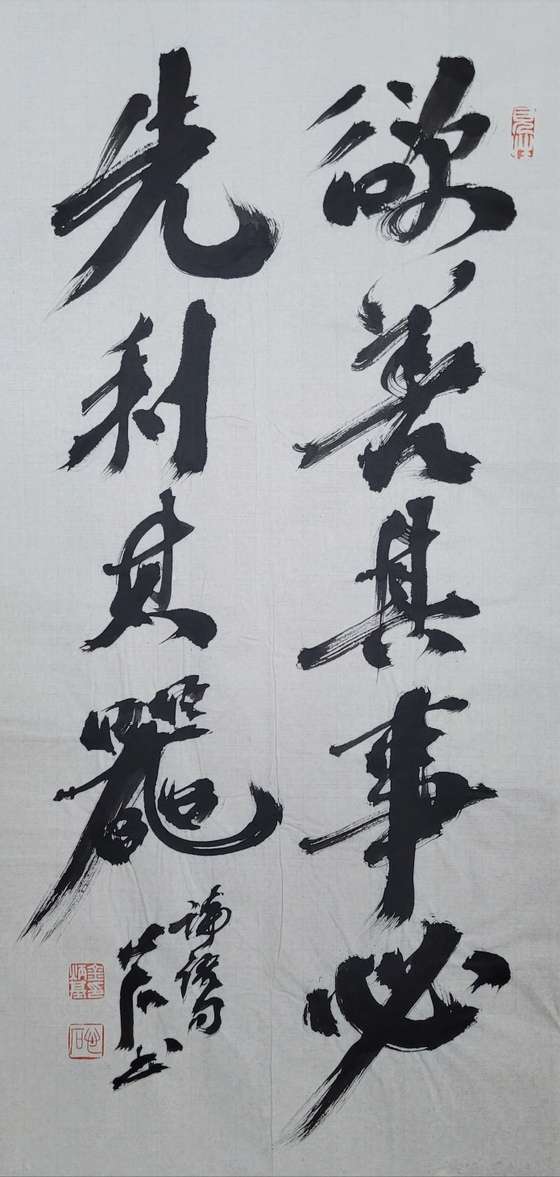 欲善其事必
先利其器
論語句